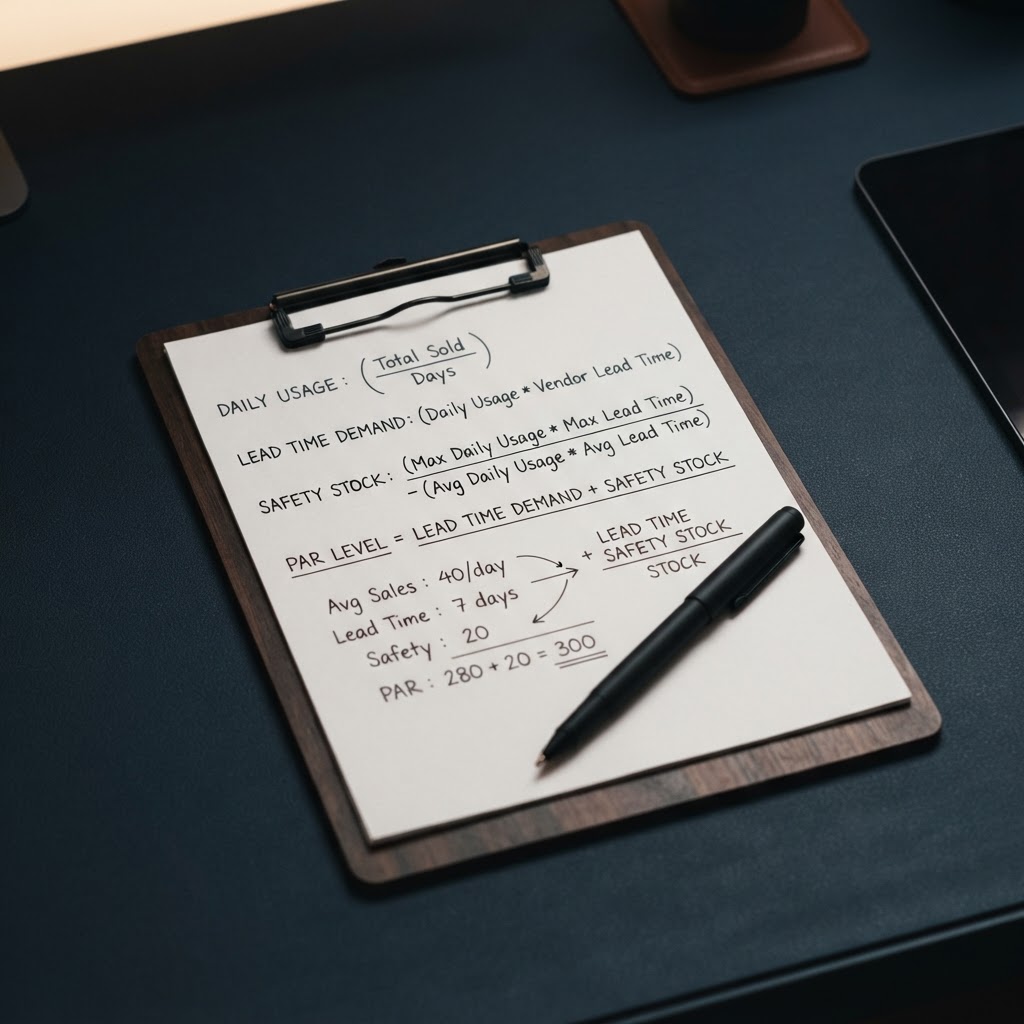 DAILY USAGE: (Total Sold / Days)
LEAD TIME DEMAND: (Daily Usage * Vendor Lead Time)
SAFETY STOCK: (Max Daily Usage * Max Lead Time)
- (Avg Daily Usage * Avg Lead Time)
PAR LEVEL = LEAD TIME DEMAND + SAFETY STOCK
Avg Sales: 40/day
Lead Time: 7 days
Safety: 20
PAR: 280 + 20 = 300
+ LEAD TIME
SAFETY STOCK
STOCK